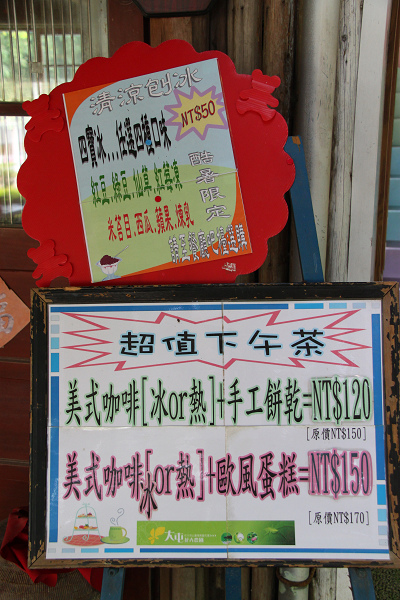 清涼刨冰
NT$50
四寶冰...任選四種口味
紅豆.綠豆.仙草.紅莓凍
米苔目.西瓜.蘋果.煉乳
酷暑限定
請至餐廳吧檯選購
超值下午茶
美式咖啡[冰or熱]+手工餅乾=NT$120
[原價NT$150]
美式咖啡[冰or熱]+歐風蛋糕=NT$150
[原價NT$170]
大屯